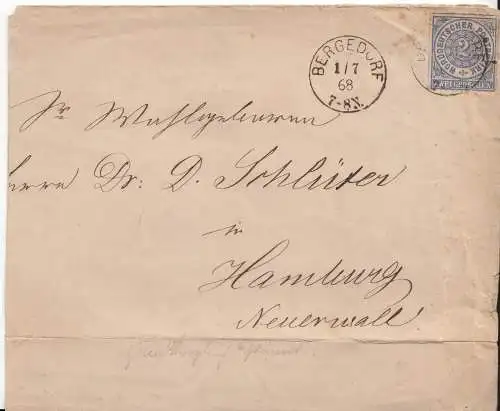 BERGEDORF
1/7
68
7-8N.
NORDDEUTSCHER POSTBEZIRK
2
ZWEI GROSCHEN
Sr. Wohlgeboren
Herrn Dr. D. Schlüter
in
Hamburg
Neuerwall.